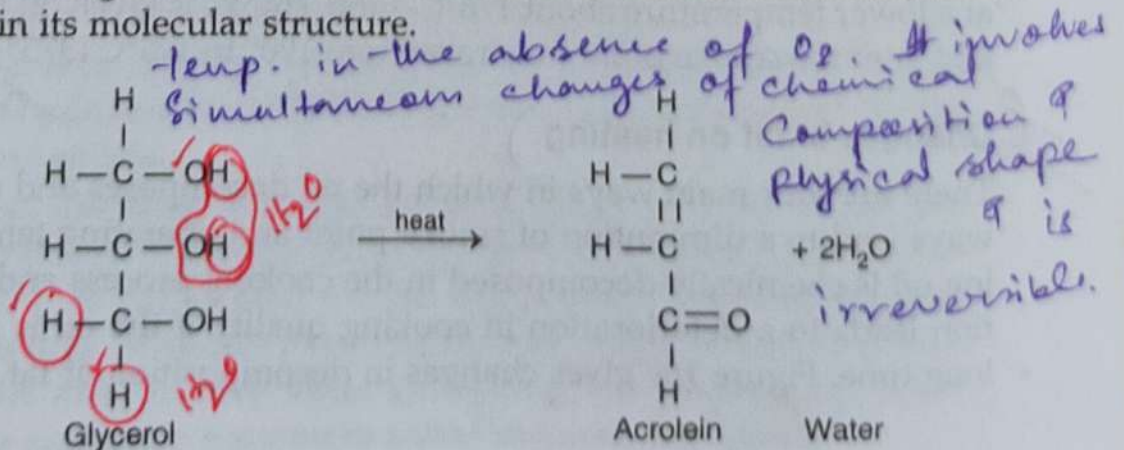 in its molecular structure.
temp. in the absence of O2 It involves
Simultaneous changes of chemical
Composition &
physical shape
& is
irreversible.
H
H – C – OH
H – C – OH
H – C – OH
H
Glycerol
H2O
heat
H
H – C
H – C
C = O
H
Acrolein
+ 2H₂O
Water